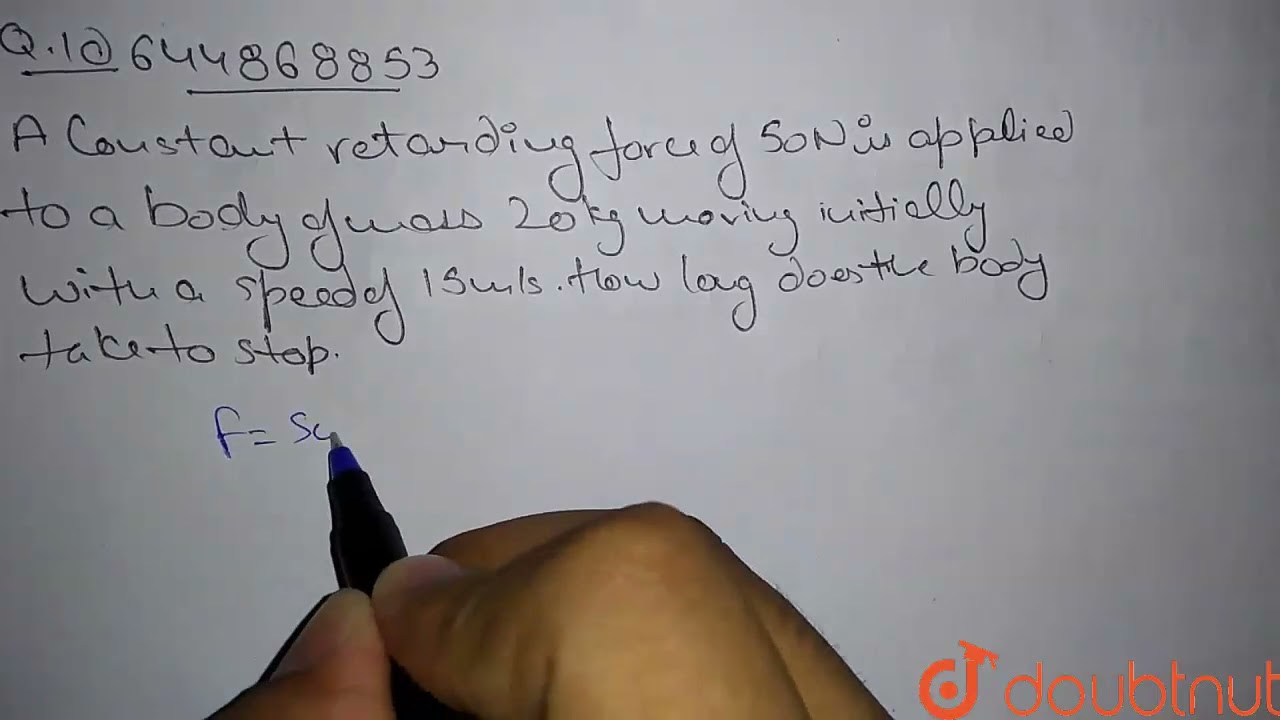 Q.1@ 644868853
A Constant retarding force of 50N is applied
to a body of mass 20 kg moving initially
with a speed of 15m/s. How long does the body
take to stop.
F = 50
doubtnut